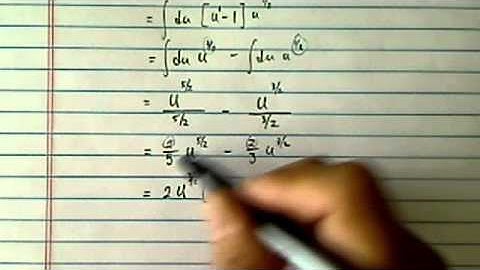 = ∫du [u¹-1] u^1/2
= ∫du u^3/2 - ∫du u^1/2
= u^5/2 / 5/2 - u^3/2 / 3/2
= 2/5 u^5/2 - 2/3 u^3/2
= 2u^3/2 (